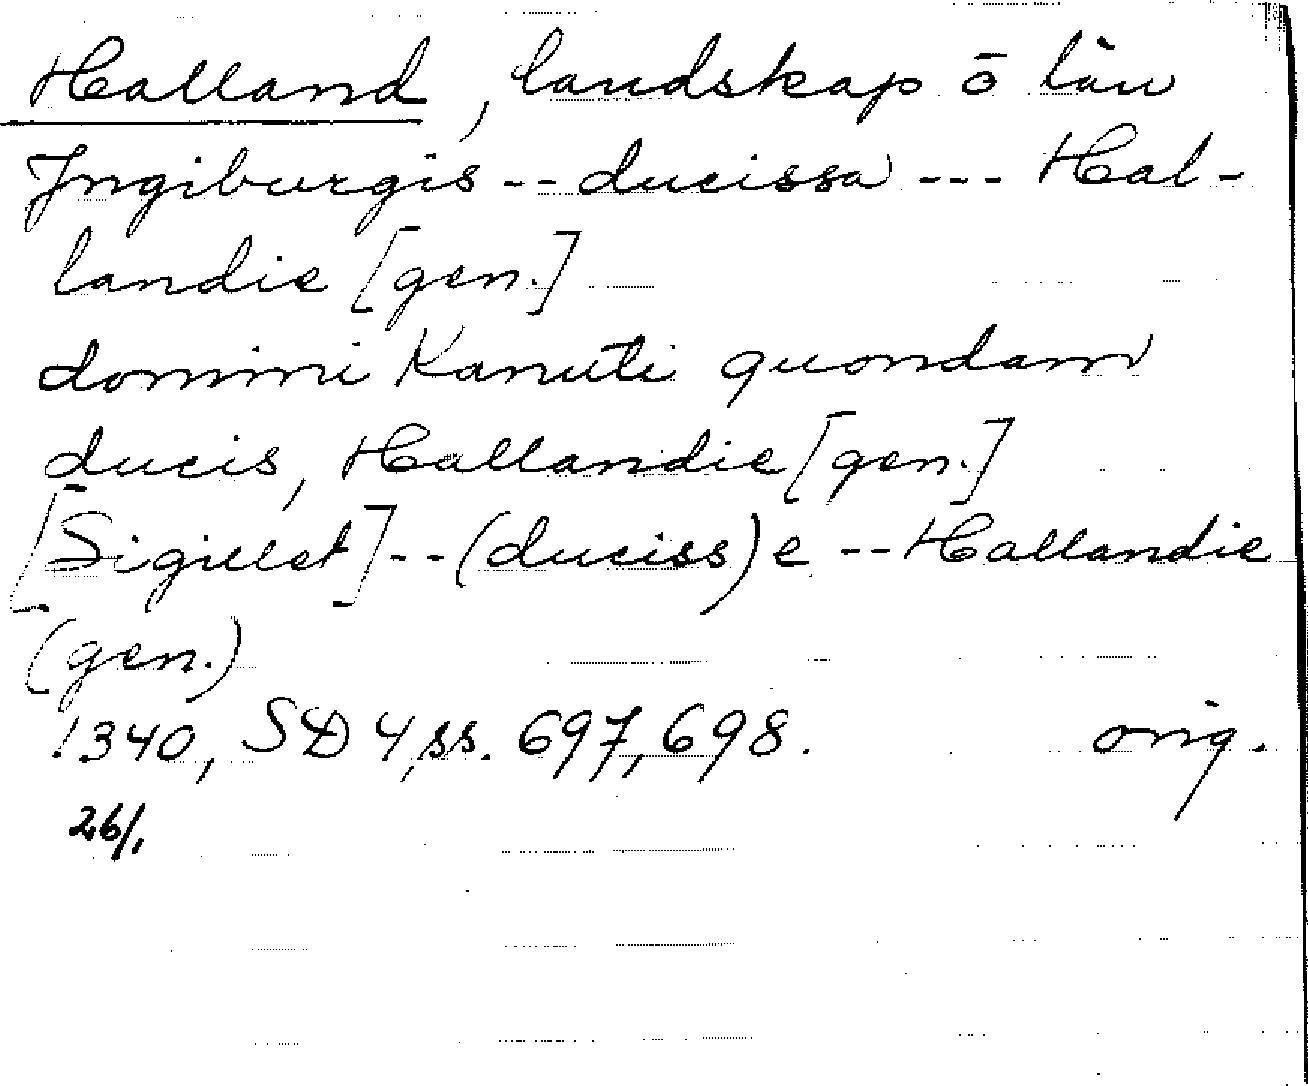 Halland, landskap ō län
Ingiburgis -- ducissa --- Hal-
landie [gen.]
domini Kanuti quondam
ducis, Hallandie [gen.]
[Sigillet] -- (duciss)e -- Hallandie
(gen.)
1340, SD 4, ss. 697, 698. orig.
26/1